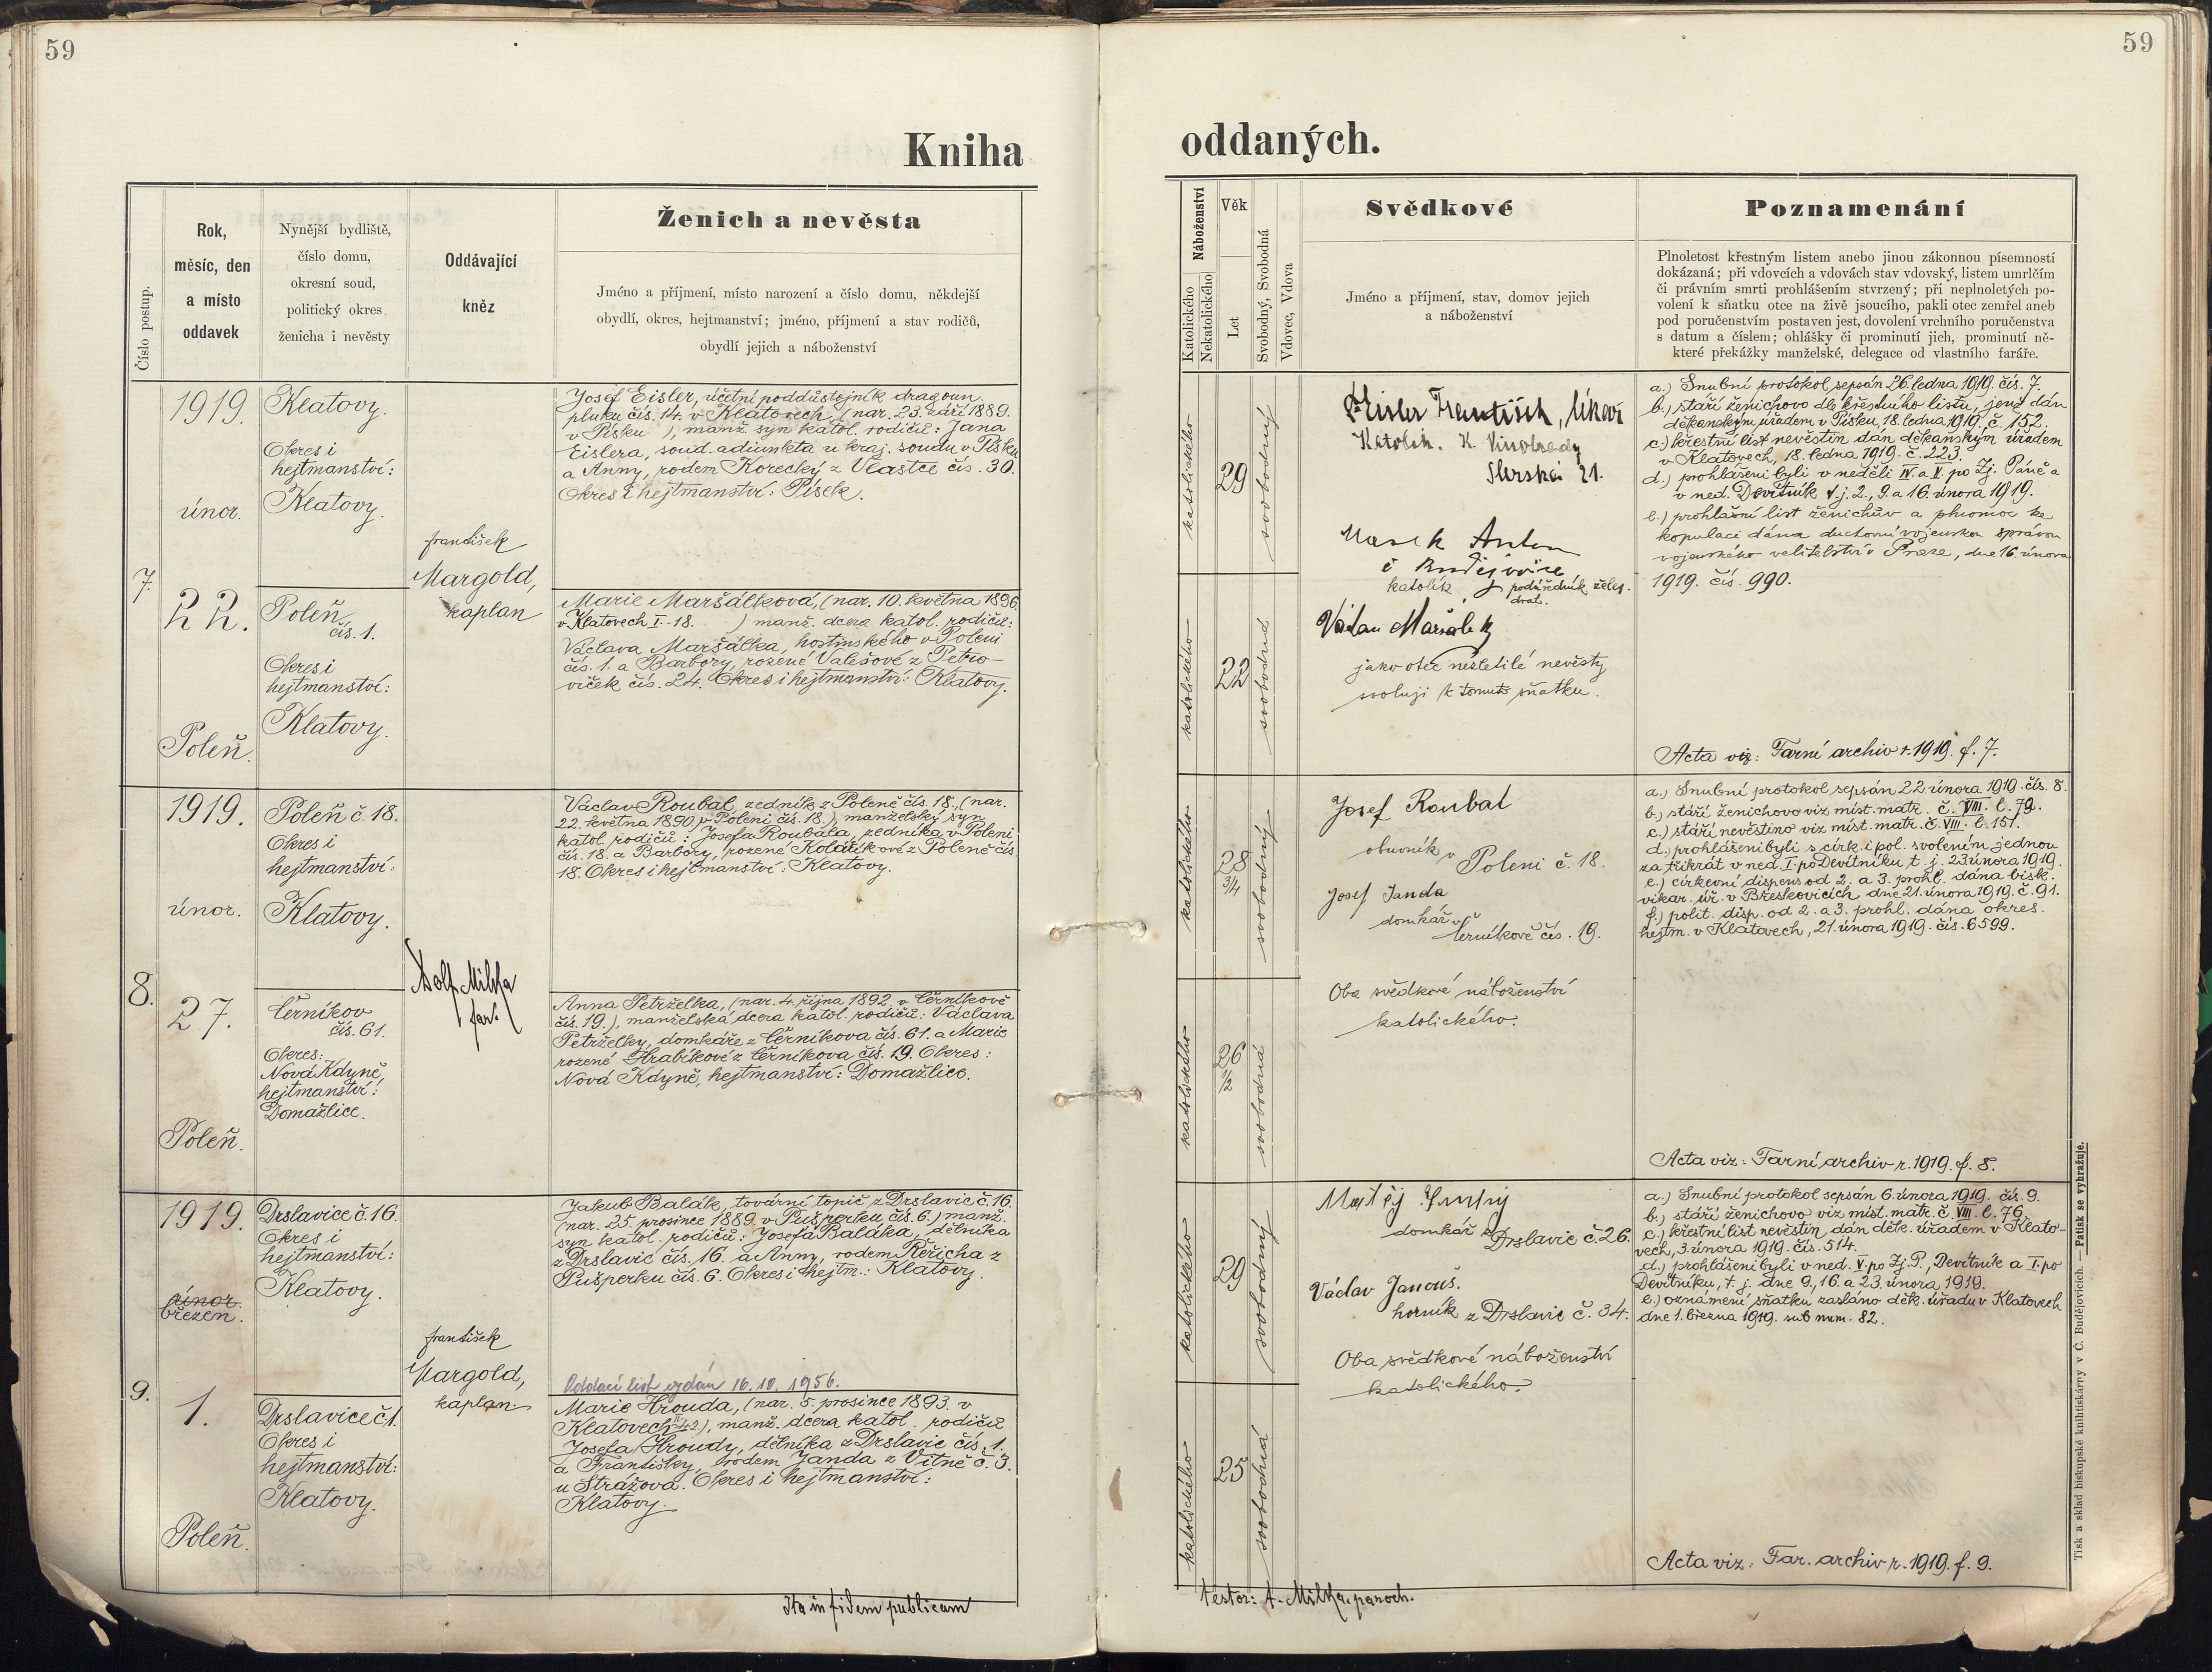 59
Kniha
Číslo postup.
Rok,
měsíc, den
a místo
oddavek
Nynější bydliště,
číslo domu,
okresní soud,
politický okres
ženicha i nevěsty
Oddávající
kněz
Ženich a nevěsta
Jméno a příjmení, místo narození a číslo domu, někdejší
obydlí, okres, hejtmanství; jméno, příjmení a stav rodičů,
obydlí jejich a náboženství
7.
1919.
únor.
22.
Poleň.
Klatovy.
Okres i
hejtmanství:
Klatovy.
Poleň
čís. 1.
Okres i
hejtmanství:
Klatovy.
František
Margold,
kaplan
Josef Eisler, účetní poddůstojník dragoun.
pluku čís. 14. v Klatovech, (nar. 23. září 1889.
v Písku ), manž. syn katol. rodičů: Jana
Eislera, soud. adjunkta u kraj. soudu v Písku
a Anny, rodem Korecký z Vlastce čís. 30.
Okres i hejtmanství: Písek.
Marie Maršálková, (nar. 10. května 1896.
v Klatovech I.-18. ) manž. dcera katol. rodičů:
Václava Maršálka, hostinského v Poleni
čís. 1. a Barbory, rozené Valešové z Petro-
viček čís. 24. Okres i hejtmanství: Klatovy.
8.
1919.
únor.
27.
Poleň.
Poleň č. 18.
Okres i
hejtmanství:
Klatovy.
Černíkov
čís. 61.
Okres:
Nová Kdyně,
hejtmanství:
Domažlice.
Adolf Milka
far.
Václav Roubal, zedník z Poleně čís. 18., (nar.
22. května 1890, v Poleni čís. 18.), manželský syn
katol. rodičů: Josefa Roubala, zedníka v Poleni
čís. 18. a Barbory, rozené Kolaříkové z Poleně čís.
18. Okres i hejtmanství: Klatovy.
Anna Petrželka, (nar. 4. října 1892, v Černíkově
čís. 19.), manželská dcera katol. rodičů: Václava
Petrželky, domkáře z Černíkova čís. 61. a Marie
rozené Hrabíkové z Černíkova čís. 19. Okres:
Nová Kdyně, hejtmanství: Domažlice.
9.
1919.
únor.
březen.
1.
Poleň.
Drslavice č. 16.
Okres i
hejtmanství:
Klatovy.
Drslavice č. 1.
Okres i
hejtmanství:
Klatovy.
František
Margold,
kaplan.
Jakub Balák, tovární topič z Drslavic č. 16.
(nar. 25. prosince 1889. v Pušperku čís. 6.) manž.
syn katol. rodičů: Josefa Baláka, dělníka
z Drslavic čís. 16. a Anny, rodem Řeřicha z
Pušperku čís. 6. Okres i hejtm.: Klatovy.
Oddací list vydán 16.10.1956.
Marie Hrouda, (nar. 5. prosince 1893. v
Klatovech II-42), manž. dcera katol. rodičů
Josefa Hroudy, dělníka z Drslavic čís. 1.
a Františky, rodem Janda z Vítně č. 3.
u Strážova. Okres i hejtmanství:
Klatovy.
Ita in fidem publicam
59
oddaných.
Náboženství
Katolického
Nekatolického
Věk
Let
Svobodný, Svobodná
Vdovec, Vdova
Svědkové
Jméno a příjmení, stav, domov jejich
a náboženství
Poznamenání
Plnoletost křestným listem anebo jinou zákonnou písemností
dokázaná; při vdovcích a vdovách stav vdovský, listem umrlčím
či právním smrti prohlášením stvrzený; při neplnoletých po-
volení k sňatku otce na živě jsoucího, pakli otec zemřel aneb
pod poručenstvím postaven jest, dovolení vrchního poručenstva
s datum a číslem; ohlášky či prominutí jich, prominutí ně-
které překážky manželské, delegace od vlastního faráře.
katolického
29
svobodný
katolického
22
svobodná
Eisler František, lékař
Katolík. K. Vinohrady
Slezská 21.
Anton
katolík, podúředník želez.
drah.
Václav Maršálek
jako otec nezletilé nevěsty
svoluji k tomuto sňatku.
a.) Snubní protokol sepsán 26. ledna 1919. čís. 7.
b.) stáří ženichovo dle křestního listu, jenž dán
děkanským úřadem v Písku, 18. ledna 1919. č. 152.
c.) křestní list nevěstin dán děkanským úřadem
v Klatovech, 18. ledna 1919. č. 223.
d.) prohlášeni byli v neděli IV. a V. po Zj. Páně a
v ned. Devítník t. j. 2., 9. a 16. února 1919.
e.) prohlašní list ženichův a plnomoc ke
kopulaci dána duchovní vojenskou správou
vojenského velitelství v Praze, dne 16 února
1919. čís. 990.
Acta viz: Farní archiv r. 1919. f. 7.
katolického
28
3/4
svobodný
katolického
26
1/2
svobodná
Josef Roubal
obuvník v
Poleni č. 18.
Josef Janda
domkář v
Černíkově čís. 19.
Oba svědkové náboženství
katolického.
a.) Snubní protokol sepsán 22. února 1919. čís. 8.
b.) stáří ženichovo viz míst. matr. č. VIII. l. 79.
c.) stáří nevěstino viz míst. matr. č. VIII. l. 151.
d.) prohlášeni byli s círk. i pol. svolením jednou
za třikrát v ned. I. po Devítníku t. j. 23 února 1919.
e.) církevní dispens od 2. a 3. prohl. dána bisk.
vikar. úř. v Břeskovicích, dne 21. února 1919. č. 91.
f.) polit. disp. od 2. a 3. prohl. dána okres.
hejtm. v Klatovech, 21. února 1919. čís. 6599.
Acta viz: Farní archiv r. 1919. f. 8.
katolického
29
svobodný
katolického
25
svobodná
Matěj
domkář z Drslavic č. 26.
Václav Janouš.
horník z Drslavic č. 34.
Oba svědkové náboženství
katolického.
a.) Snubní protokol sepsán 6. února 1919. čís. 9.
b.) stáří ženichovo viz míst. matr. č. VIII. l. 76.
c.) křestní list nevěstin, dán děk. úřadem v Klato-
vech, 3. února 1919. čís. 514.
d.) prohlášeni byli v ned. V. po Zj. P., Devítník a I. po
Devítníku, t. j. dne 9, 16. a 23. února 1919.
e.) oznámení sňatku zasláno děk. úřadu v Klatovech
dne 1. března 1919. sub num. 82.
Acta viz: Far. archiv r. 1919. f. 9.
testor: A. Milka, paroch.
Tisk a sklad biskupské knihtiskárny v Č. Budějovicích. — Patisk se vyhražuje.